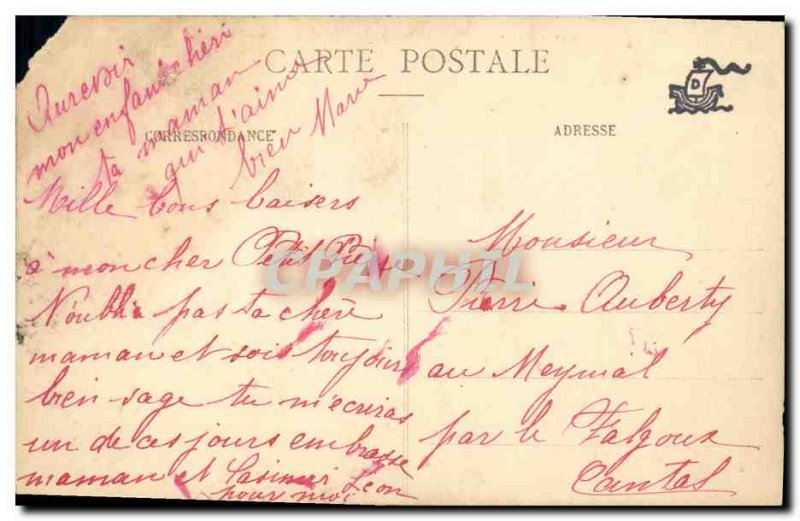 CARTE POSTALE
CORRESPONDANCE
ADRESSE
D
Aurevoir
mon enfant chéri
ta maman
qui t'aime
bien Marie
Mille bons baisers
à mon cher Petit
N'oublie pas ta chère
maman et sois toujours
bien sage tu m'ecriras
un de ces jours embrasse
maman et Casimir Leon
pour moi
Monsieur
Pierre Auberty
au Meymal
par le Falgoux
Cantal
CPAPHIL